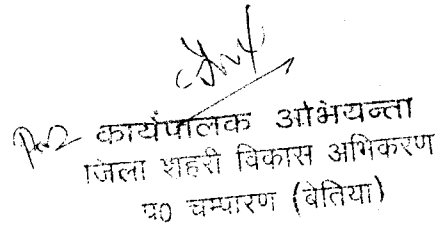 कार्यपालक अभियन्ता
जिला शहरी विकास अभिकरण
प० चम्पारण (बेतिया)